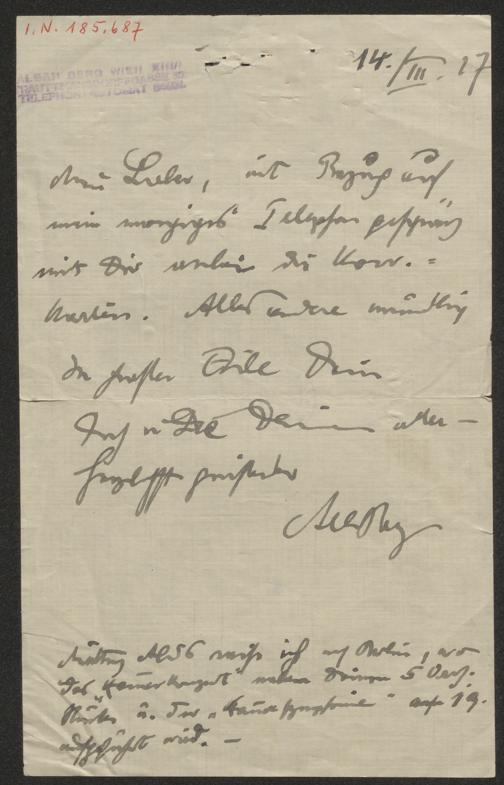 I.N. 185.687
14./III. 27
ALBAN BERG WIEN XIII/1
TRAUTTMANSDORFFGASSE 27
TELEPHON: AUTOMAT
Mein Lieber, mit Bezug auf
mein morgiges Telephongespräch
mit Dir anbei die Korr.=
karten. Alles andere mündlich
In großer Eile Dein
Dich u. die Deinen aller-
herzlichst grüßender
Alb Berg
Abends reise ich nach Berlin, wo
das "Kammerkonzert" neben Deinen 5 Orch.
Stücken u. der "Kammersymphonie" am 19.
aufgeführt wird. —